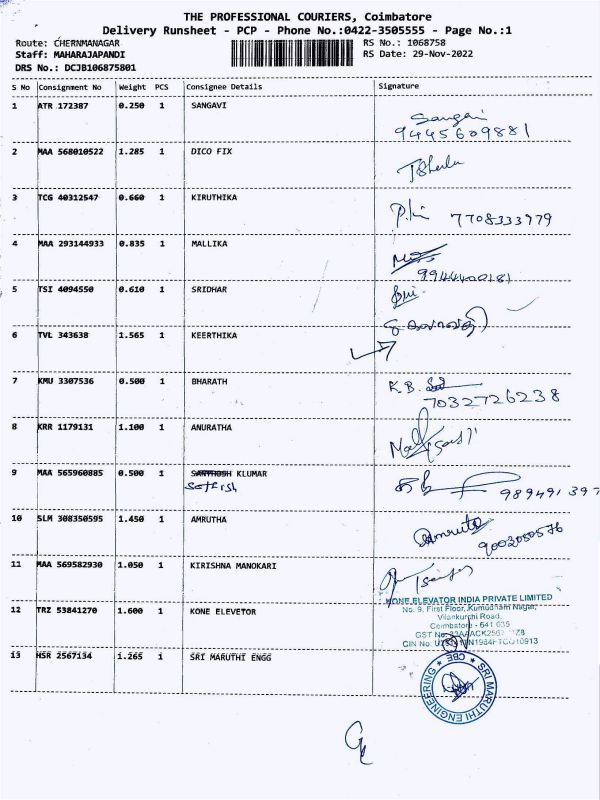 THE PROFESSIONAL COURIERS, Coimbatore
Delivery Runsheet - PCP - Phone No.:0422-3505555 - Page No.:1
Route: CHERNMANAGAR
RS No.: 1068758
Staff: MAHARAJAPANDI
RS Date: 29-Nov-2022
DRS No.: DCJB106875801
S No Consignment No Weight PCS Consignee Details Signature
1 ATR 172387 0.250 1 SANGAVI
9445609881
2 MAA 568010522 1.285 1 DICO FIX
3 TCG 40312547 0.660 1 KIRUTHIKA
7708333979
4 MAA 293144933 0.835 1 MALLIKA
9944400181
5 TSI 4094550 0.610 1 SRIDHAR
6 TVL 343638 1.565 1 KEERTHIKA
7 KMU 3307536 0.500 1 BHARATH
K.B.
7032726238
8 KRR 1179131 1.100 1 ANURATHA
9 MAA 565960885 0.500 1 SANTHOSH KLUMAR
Sathish
989491397
10 SLM 308350595 1.450 1 AMRUTHA
Amrutha
9003050576
11 MAA 569582930 1.050 1 KIRISHNA MANOKARI
KONE ELEVATOR INDIA PRIVATE LIMITED
No. 9, First Floor, Kumudham Nagar,
Vilankurchi Road,
Coimbatore - 641 035
GST No.
CIN No:
12 TRZ 53841270 1.600 1 KONE ELEVETOR
13 HSR 2567134 1.265 1 SRI MARUTHI ENGG
SRI MARUTHI ENGINEERING
CBE